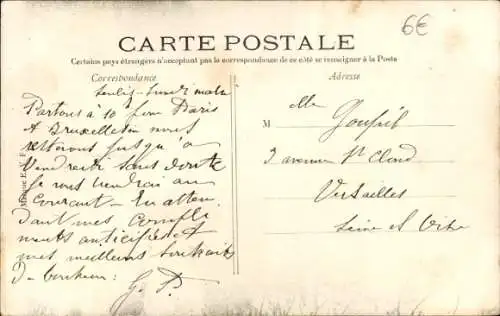 6€
CARTE POSTALE
Certains pays étrangers n'acceptant pas la correspondance de ce côté se renseigner à la Poste
Correspondance
Adresse
Senlis - Lundi matin
Partons à 10 pour Paris
A Bruxelles nous
resterons jusqu'à
Vendredi sans doute
je vous tiendrai au
courant - En atten
dant mes complé
ments anticipés et
mes meilleurs souhaits
De bonheur :
G. P.
Mlle
Goupil
3 avenue St Cloud
Versailles
Seine et Oise
E. V.